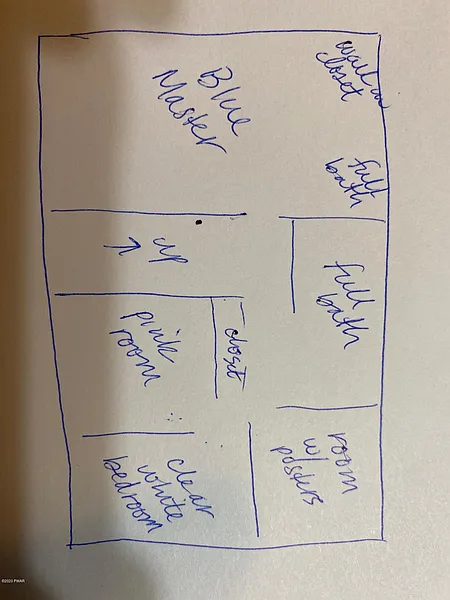 Blue
Master
walk in
closet
full
bath
up
full
bath
pink
room
closet
room
w/
posters
clear
white
bedroom
©2023 PWAR